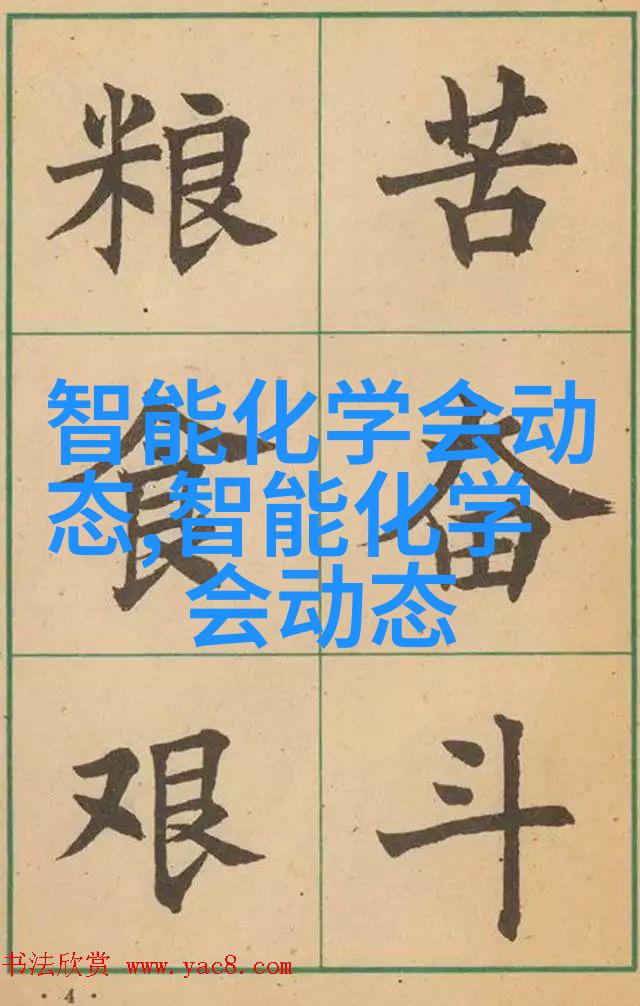 粮 苦
食 奋
艰 斗
智能化学会动
态,智能化学
会动态
书法欣赏 www.yac8.com
· 4 ·